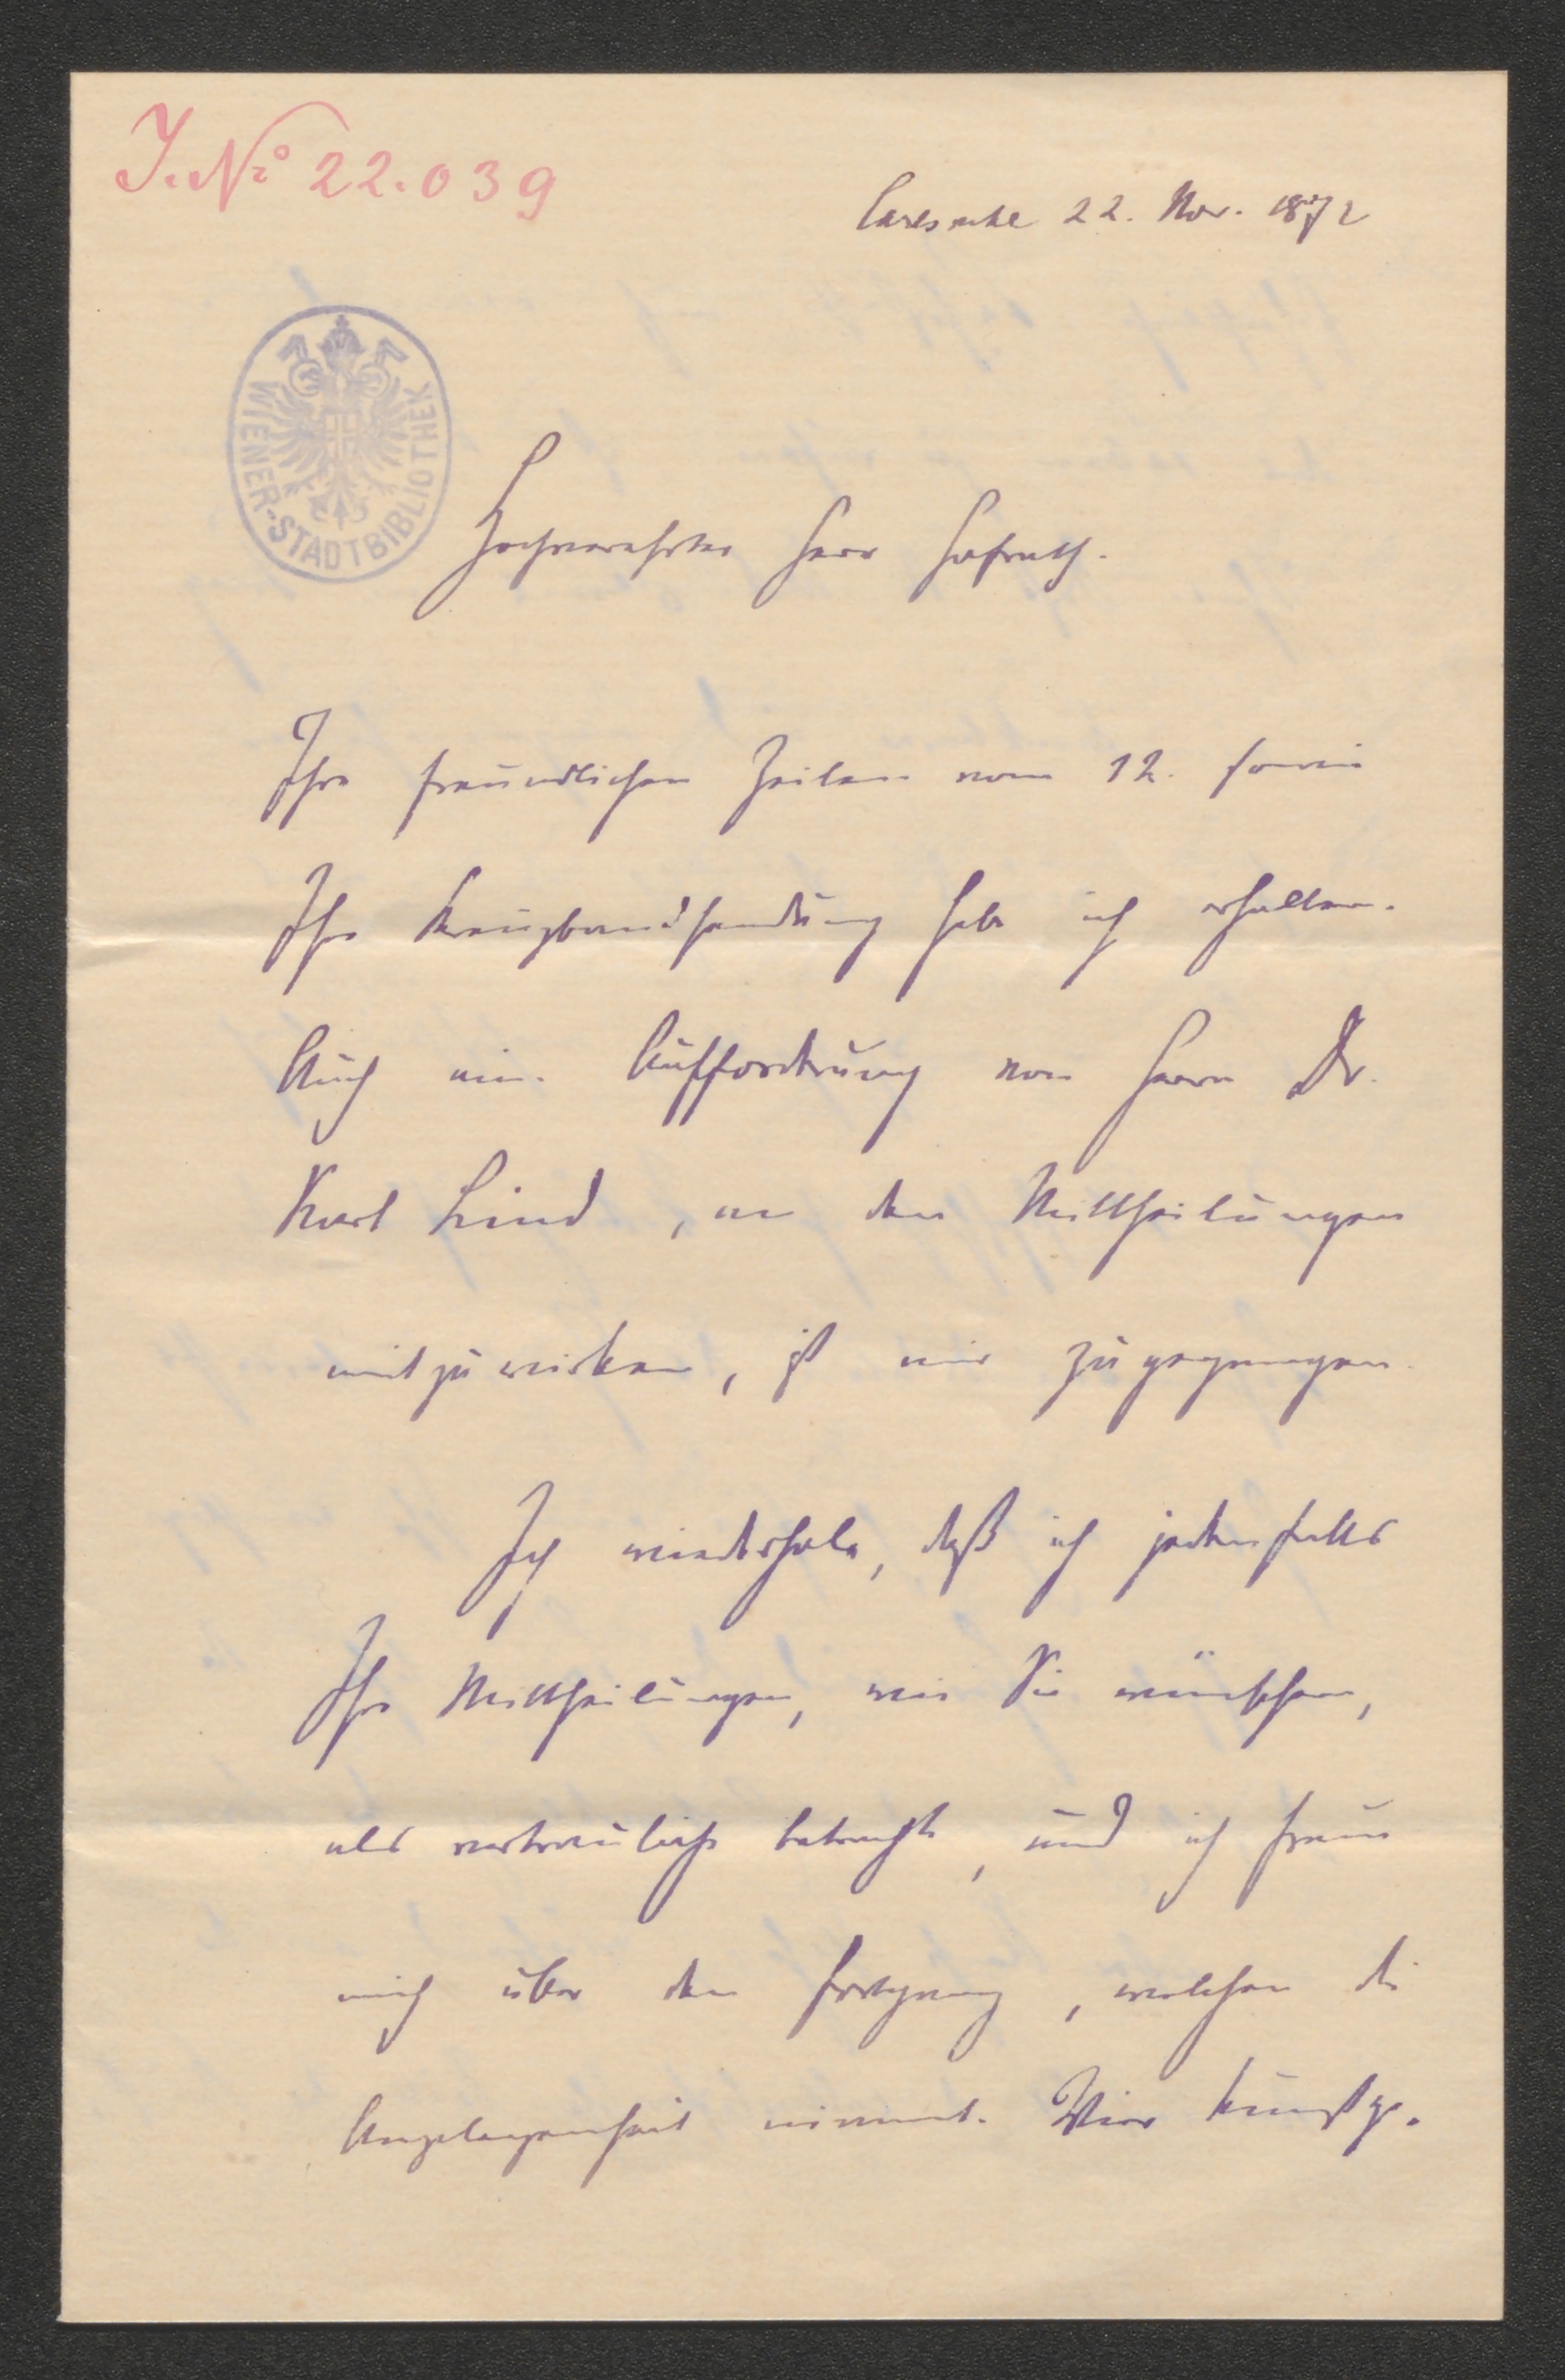 J. No 22.039
Carlsruhe 22. Nov. 1872
WIENER-STADTBIBLIOTHEK
Hochverehrter Herr Hofrath.
Ihre freundlichen Zeilen vom 12. sowie
Ihre Kreuzbandsendung habe ich erhalten.
Auch eine Aufforderung von Herrn Dr.
Karl Lind, an den Mittheilungen
mitzuwirken, ist mir zugegangen.
Ich wiederhole, daß ich jedenfalls
Ihre Mittheilungen, wie Sie wünschen,
als vertrauliche betrachte, und ich freue
mich über den Fortgang, welchen die
Angelegenheit nimmt.